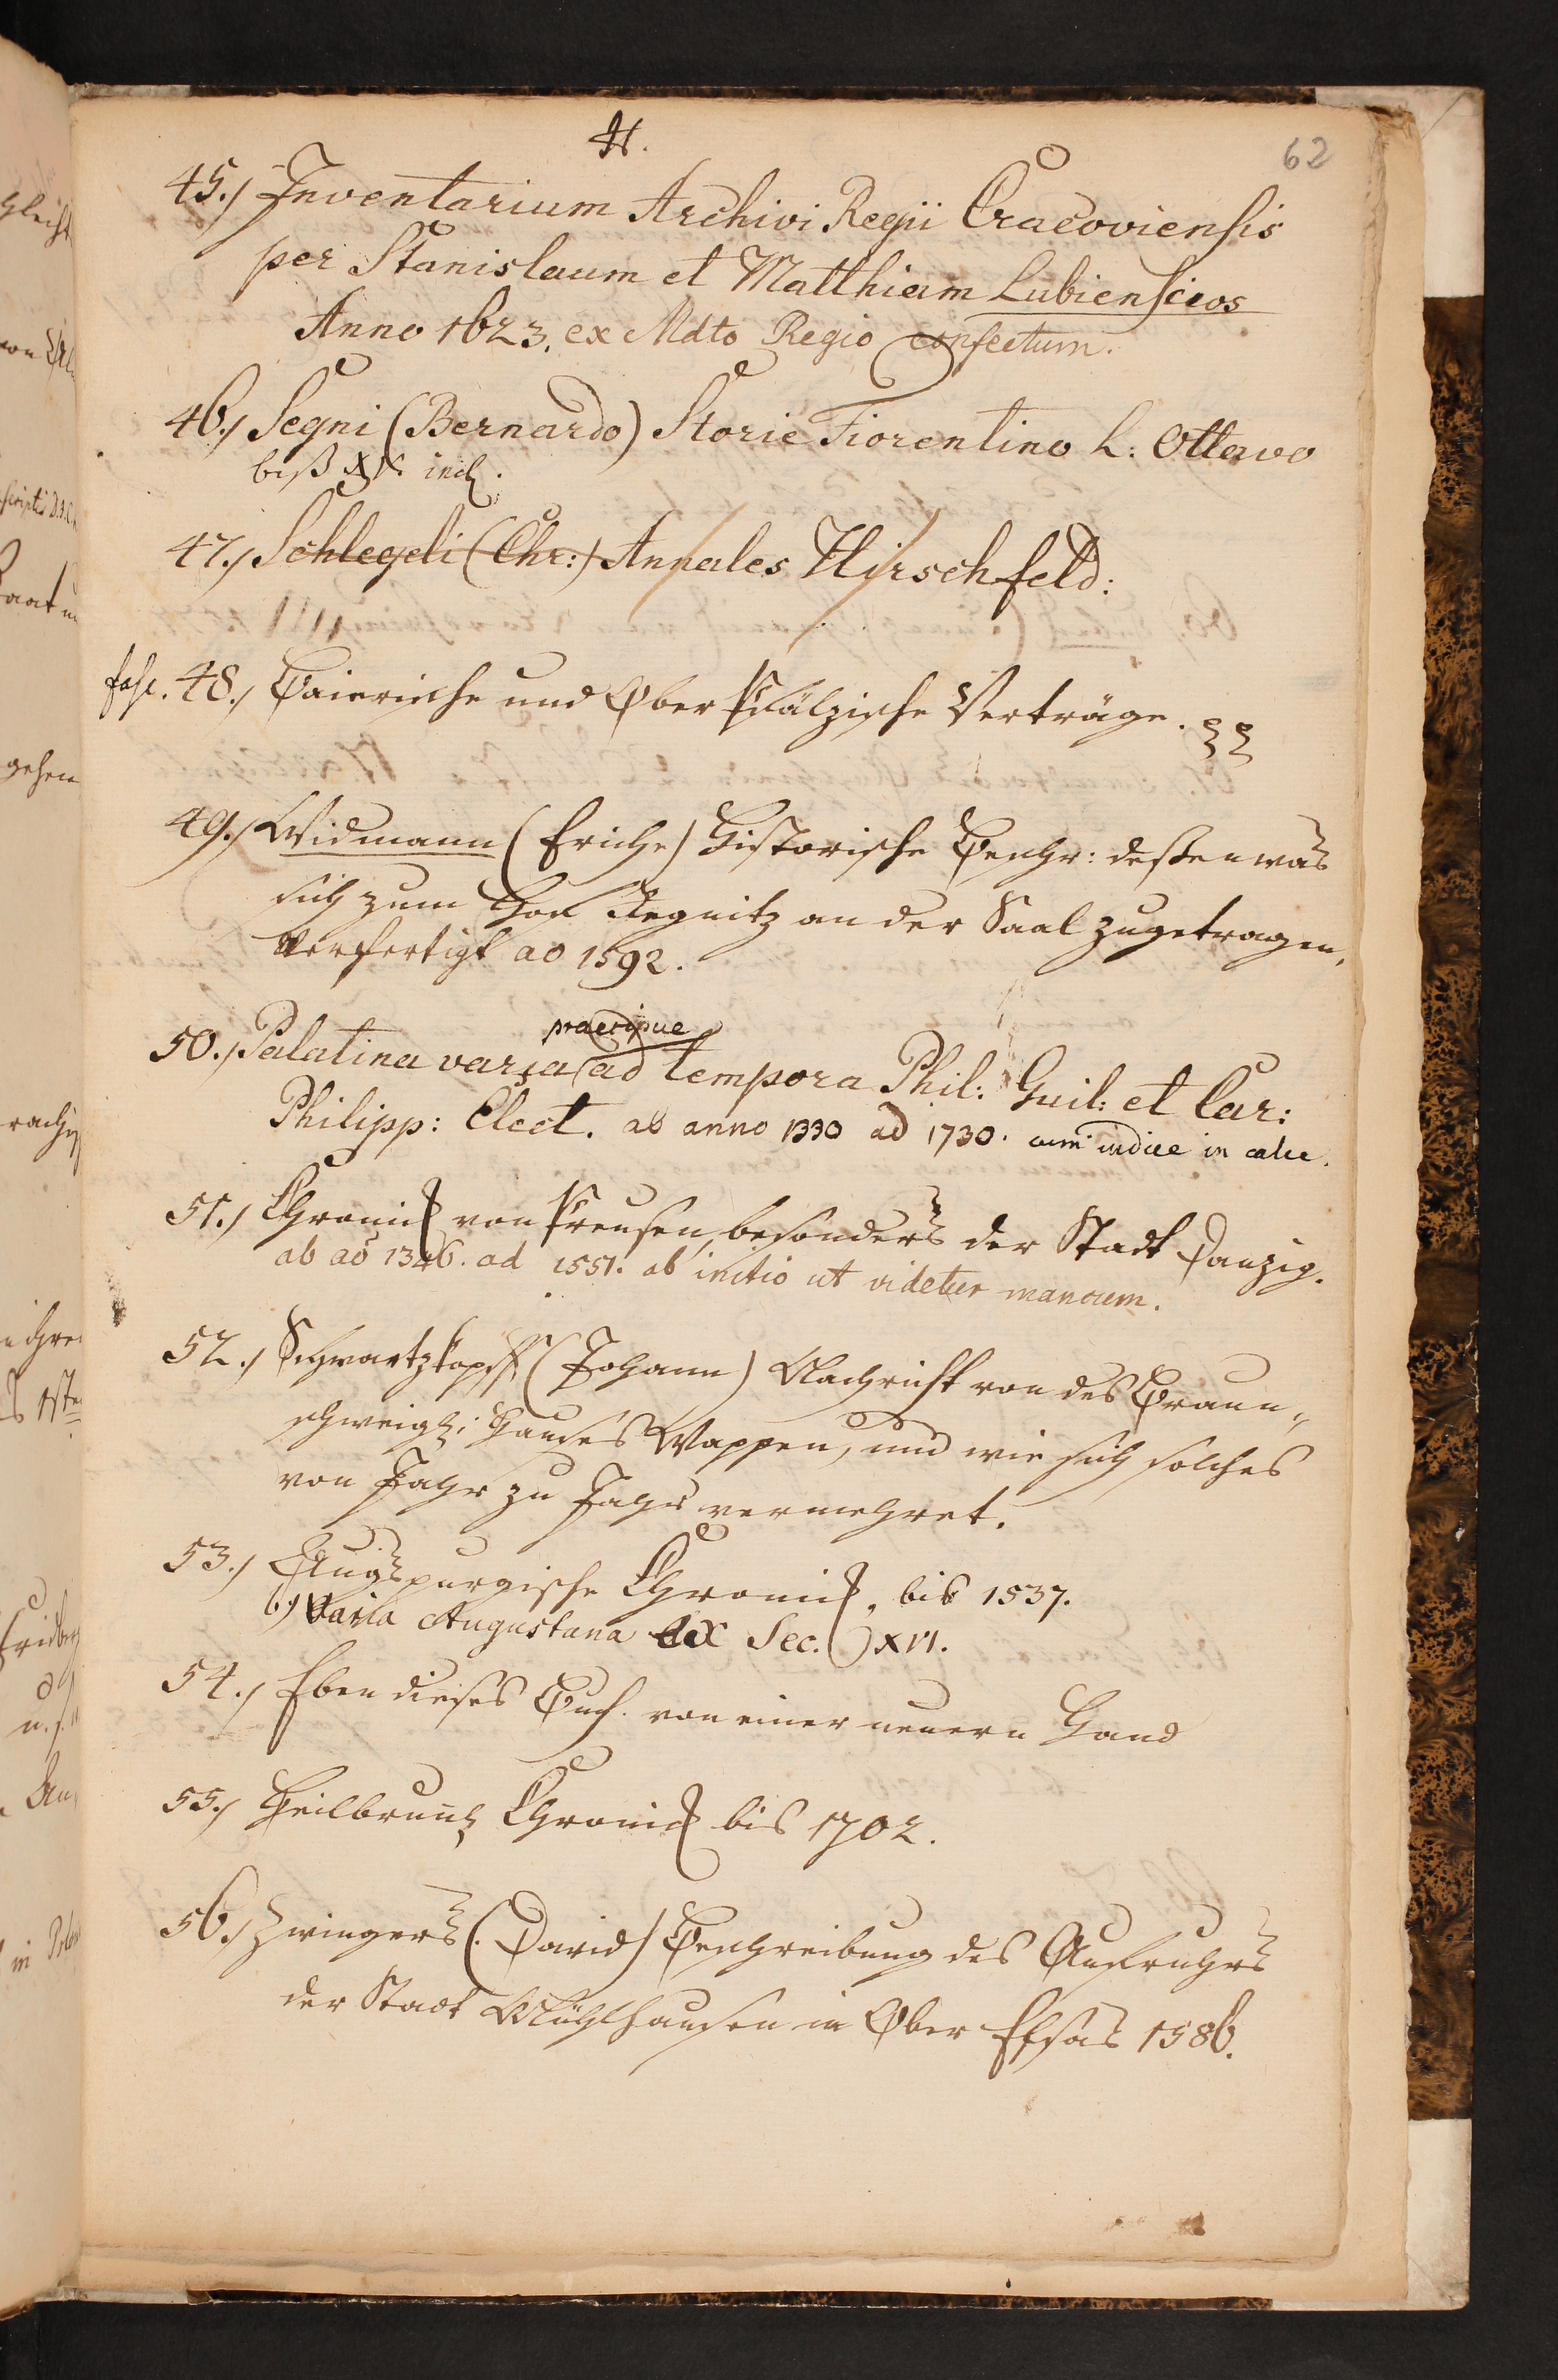 H.
62
45.) Inventarium Archivi Regii Cracoviensis
per Stanislaum et Matthiam Lubienscios
Anno 1623. ex Mdto Regio confectum.
46.) Segni (Bernardo) Storie Fiorentino L: Ottavo
biß XV. incl.
47.) Schlegeli (Chr:) Annales Hirschfeld:
fasc. 48.) Baierische und Ober Pfälzische Verträge.
49.) Widmann (Eriche) Historische Beschr: deßen was
sich zum Hof Regnitz an der Saal zugetragen,
Verfertigt ao 1592.
praecipue
50.) Palatina varia ad tempora Phil: Guil: et Car:
Philipp: Elect. ab anno 1330 ad 1730. cum indice in calce.
51.) Chronick von Preusen, besonders der Stadt Danzig.
ab ao 1346. ad 1551. ab initio ut videtur mancum.
52.) Schwartzkopff (Johann) Nachricht von des Braun„
schweigl: Hauses Wappen, und wie sich solches
von Jahr zu Jahr vermehret.
53.) Augspurgische Chronick, bis 1537.
b.) Varia Augustana ex Sec. XVI.
54.) Eben dieses Buch. von einer neuern Hand
55.) Heilbrunl Chronick bis 1702.
56.) Zwingers (David) Beschreibung des Aufruhrs
der Stadt Mühlhausen in Ober Elsas 1586.